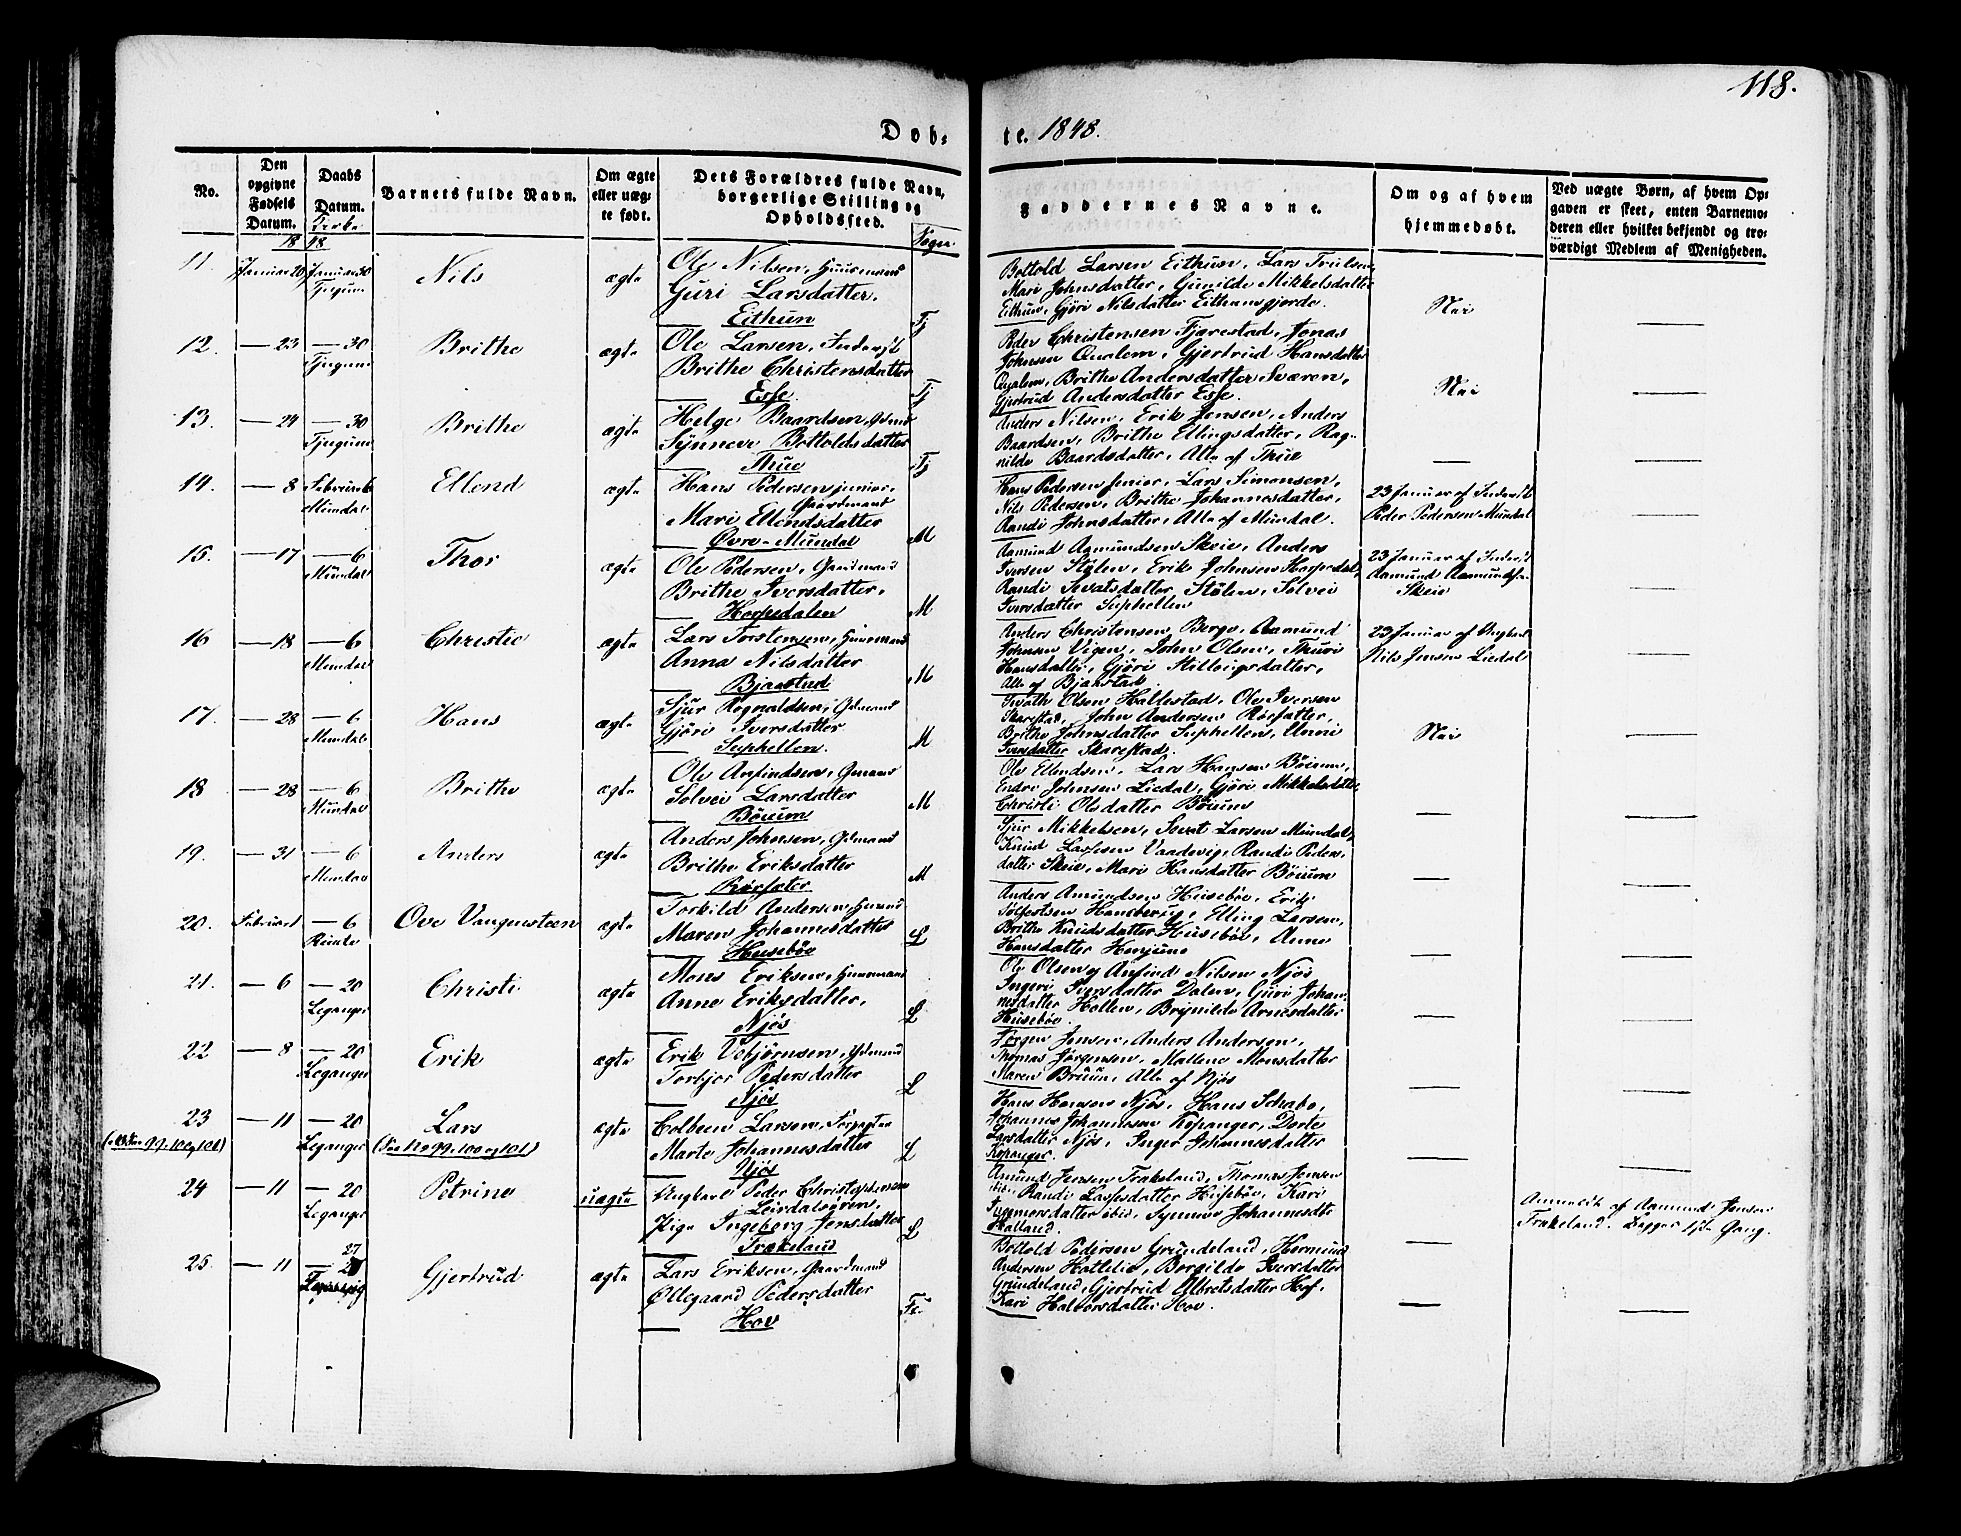 118.
Døb- te. 1848.
No.
Den opgivne Fødsels Datum.
Daabs Datum.
Barnets fulde Navn.
Om ægte eller uægte født.
Dets Forældres fulde Navn, borgerlige Stilling og Opholdssted.
Sogn
Faddernes Navne.
Om og af hvem hjemmedøbt.
Ved uægte Børn, af hvem Opgaven er skeet, enten Barnemoderen eller hvilket bekjendt og troværdigt Medlem af Menigheden.
18 48
11. Januar 20 Januar 30 Nils ægte Ole Nilsen, Huusmand
Tjugum Guri Larsdatter.
Eithun Tj
Bottold Larsen Eithun, Lars Trulsen,
Mari Johnsdatter, Gunilde Mikkelsdatter
Eithun, Gjøri Nilsdatter Eithunsgjerde.
Nei
12. — 23 — 30 Brithe ægte Ole Larsen, Inderst
Tjugum Brithe Christensdatter
Esse Tj
Peder Christensen Tjærestad, Jonas
Johnsen Qualem, Gjertrud Hansdatter
Qualem, Brithe Andersdatter Sværen,
Gjertrud Andersdatter Esse.
Nei
13. — 24 — 30 Brithe ægte Helge Baardsen, Gdmd
Tjugum Synneve Bottoldsdatter
Thue Tj
Anders Nilsen, Erik Jensen, Anders
Baardsen, Brithe Ellingsdatter, Rag-
nilde Baardsdatter, Alle af Thue
14. — 8 Februar 6 Ellend ægte Hans Pedersen junior,
Mundal Gaardmand
Mari Ellendsdatter
Øvre-Mundal M
Hans Pedersen senior, Lars Simonsen,
Nils Pedersen, Brithe Johannesdatter,
Randi Johnsdatter, Alle af Mundal.
23 Januar af Inderst
Peder Pedersen Mundal
15. — 17 — 6 Thor ægte Ole Pedersen, Gaardmand
Mundal Brithe Iversdatter,
Horpedalen M
Aamund Aamundsen Skeie, Anders
Iversen Stølen, Erik Johnsen Horpedal,
Randi Sivatsdatter, Stølen, Solvei
Iversdatter Suphellen
23 Januar af Inderst
Aamund Aamundsen
Skeie
16 — 18 — 6 Christie ægte Lars Torstensen, Huusmand
Mundal Anna Nilsdatter
Bjaastad M
Anders Christensen Berge, Aamund
Johnsen Vigen, John Olsen, Thuri
Hansdatter, Gjøri Stillougsdatter,
Alle af Bjaastad.
23 Januar af Ungkarl
Nils Jensen Liedal
17. — 28 — 6 Hans ægte Sjur Rognaldsen, Gdmand
Mundal Gjøri Iversdatter
Suphellen. M
Olsen Hallestad, Ole Iversen
Skarestad, John Andersen Rørsætter,
Brithe Johnsdatter Suphellen, Unni
Iversdatter Skarestad.
Nei
18 — 28 — 6 Brithe ægte Ole Anfindsen, Gmand
Mundal Solvei Larsdatter
Bøium M
Ole Ellendsen, Lars Hansen Bøium,
Endre Johnsen Liedal, Gjøri Mikkelsdatter
Christi Olsdatter Bøium
19. — 31 — 6 Anders ægte Anders Johnsen, Gdmand
Mundal Brithe Eriksdatter
Rørsæter M
Sjur Mikkelsen, Sivat Larsen Mundal,
Knud Lassesen Vaadevig, Randi Peders-
datter Skeie, Mari Hansdatter Bøium
20. Februar 1 — 6 Ove Vangensteen ægte Torkild Andersen, Gmand
Maren Johannesdatter
Husebøe L
Anders Amundsen Husebøe, Erik
Hamberug, Elling Larsen,
Brithe Knudsdatter Husebøe, Anne
Hansdatter Henjum
21. — 6 — 20 Christi ægte Mons Eriksen, Huusmand
Leganger Anne Eriksdatter,
Njøs L
Ole Olsen og Anfind Nilsen Njøs
Ingeri Iversdatter Dalen, Guri Johan-
nesdatter Hollen, Brynilde Arnesdatter
Husebøe.
22 — 8 — 20 Erik ægte Erik Vebjørnsen, Gdmand
Leganger Torbjør Pedersdatter
Njøs L
Jørgen Jensen, Anders Andersen,
Thomas Jørgensen, Mallene Monsdatter
Maren Bruun, Alle af Njøs
23 — 11 — 20 Lars ægte Colbein Larsen, Forpagter
(99, 100 og 101) Leganger (See No 99, 100 og 101) Marte Johannesdatter
Njøs L
Hans Hansen Njøs, Hans Schabo,
Johannes Johannesen Kopanger, Dorte
Larsdatter Njøs, Inger Johannesdatter
Kopanger.
24 — 11 — 20 Petrine uægte Ungkarl Peder Christophersen
Leganger Leirdalsøren,
Pige Ingeborg Jensdatter
Frækeland L
Amund Jensen Frækeland, Thomas Jensen
ibid, Randi Lassesdatter Husebøe, Kari
Ingemorsdatter ibid, Synneve Johannesdtr
Halland.
Anmeldt af Aamund Jensen
Frækeland. Begges 1ste Gang.
25. — 11 27 Gjertrud ægte Lars Eriksen, Gaardmand
Øllegaard Pedersdatter
Hov Fe.
Bottold Pedersen Grundeland, Hermund
Andersen Hatlelie, Borgilde Iversdatter
Grundeland, Gjertrud Albretsdatter Hof,
Kari Halvorsdatter Hov.